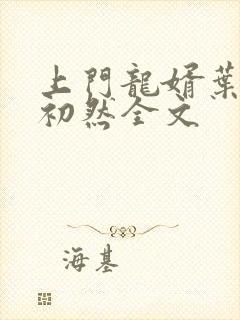 上門龍婿葉
初然全文
海基